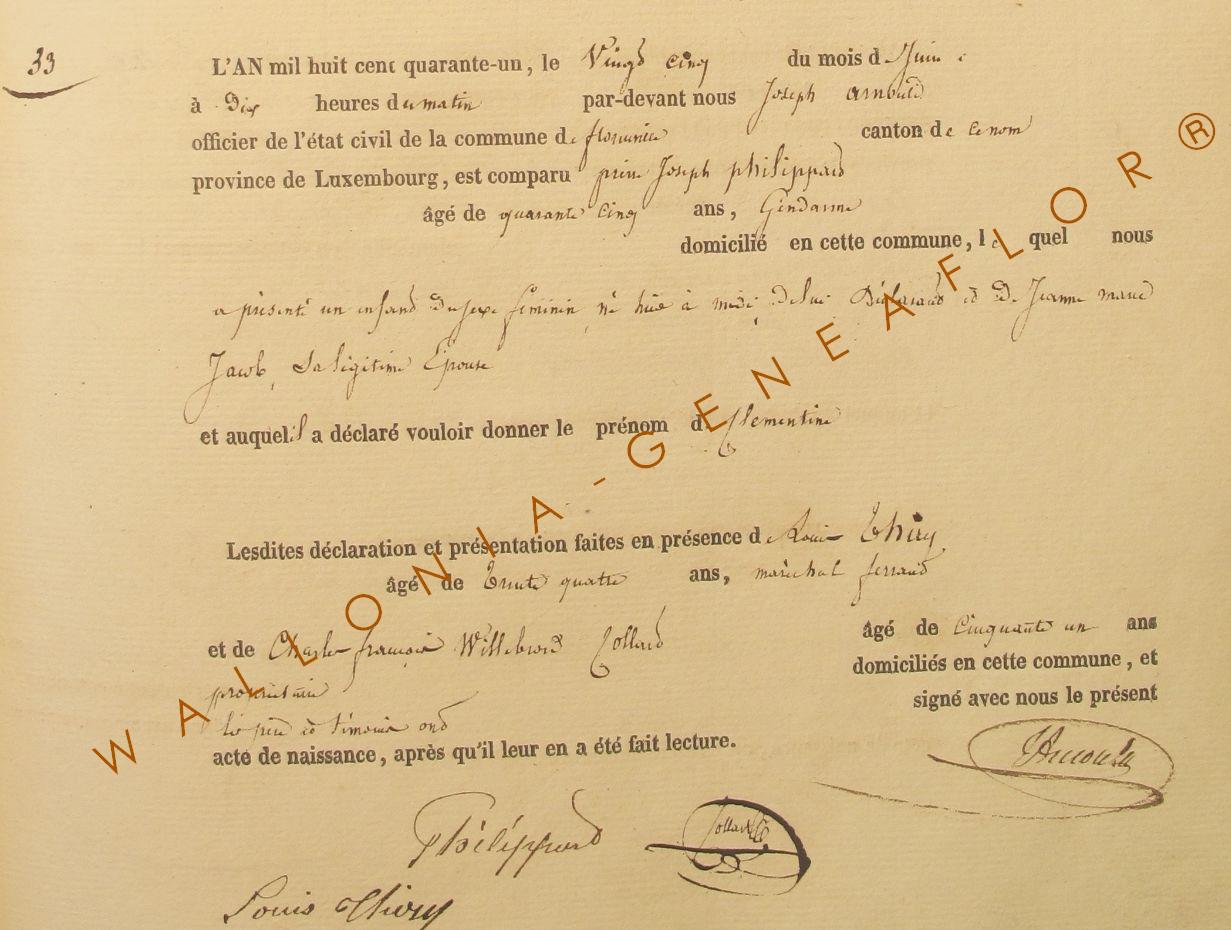 33
L'AN mil huit cent quarante-un, le Vingt cinq du mois de Juin
à Dix heures du matin par-devant nous Joseph Arnould
officier de l'état civil de la commune de florenville canton de ce nom
province de Luxembourg, est comparu Joseph philippart
âgé de quarante cinq ans, Gendarme
domicilié en cette commune, le quel nous
a présenté un enfant du sexe féminin, né hier à midi, de lui Déclarant et de Jeanne marie
Jacob, Sa légitime Epouse
et auquel il a déclaré vouloir donner le prénom de Clementine
Lesdites déclaration et présentation faites en présence de Louis Thiry
âgé de trente quatre ans, maréchal ferrant
et de Charles françois Willebrord Collard âgé de Cinquante un ans
propriétaire domiciliés en cette commune, et
les père et témoins ont signé avec nous le présent
acte de naissance, après qu'il leur en a été fait lecture.
JArnould
Philippart Collard
Louis Thiry
WALLONIA-GENEAFLOR ®